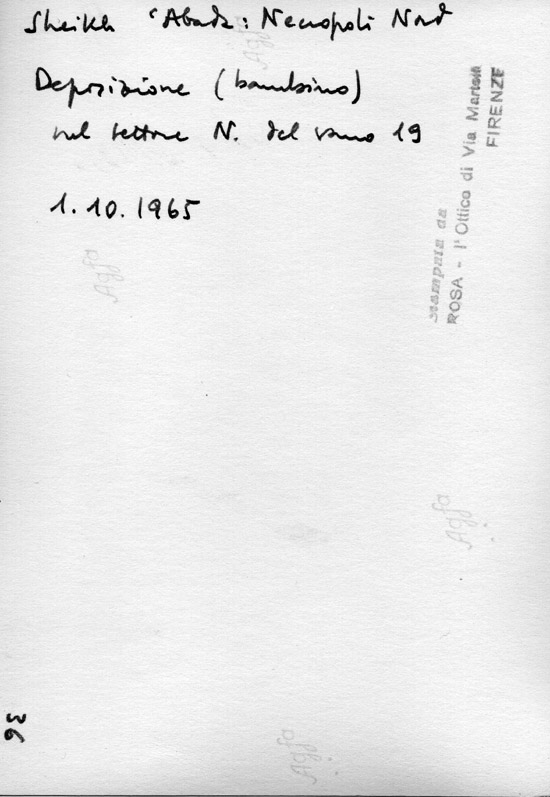 Sheikh ʿAbada: Necropoli Nord
Deposizione (bambino)
nel settore N. del vano 19
1.10.1965
stampata da
ROSA - l'Ottico di Via Martelli
FIRENZE
Agfa
Agfa
Agfa
Agfa
36